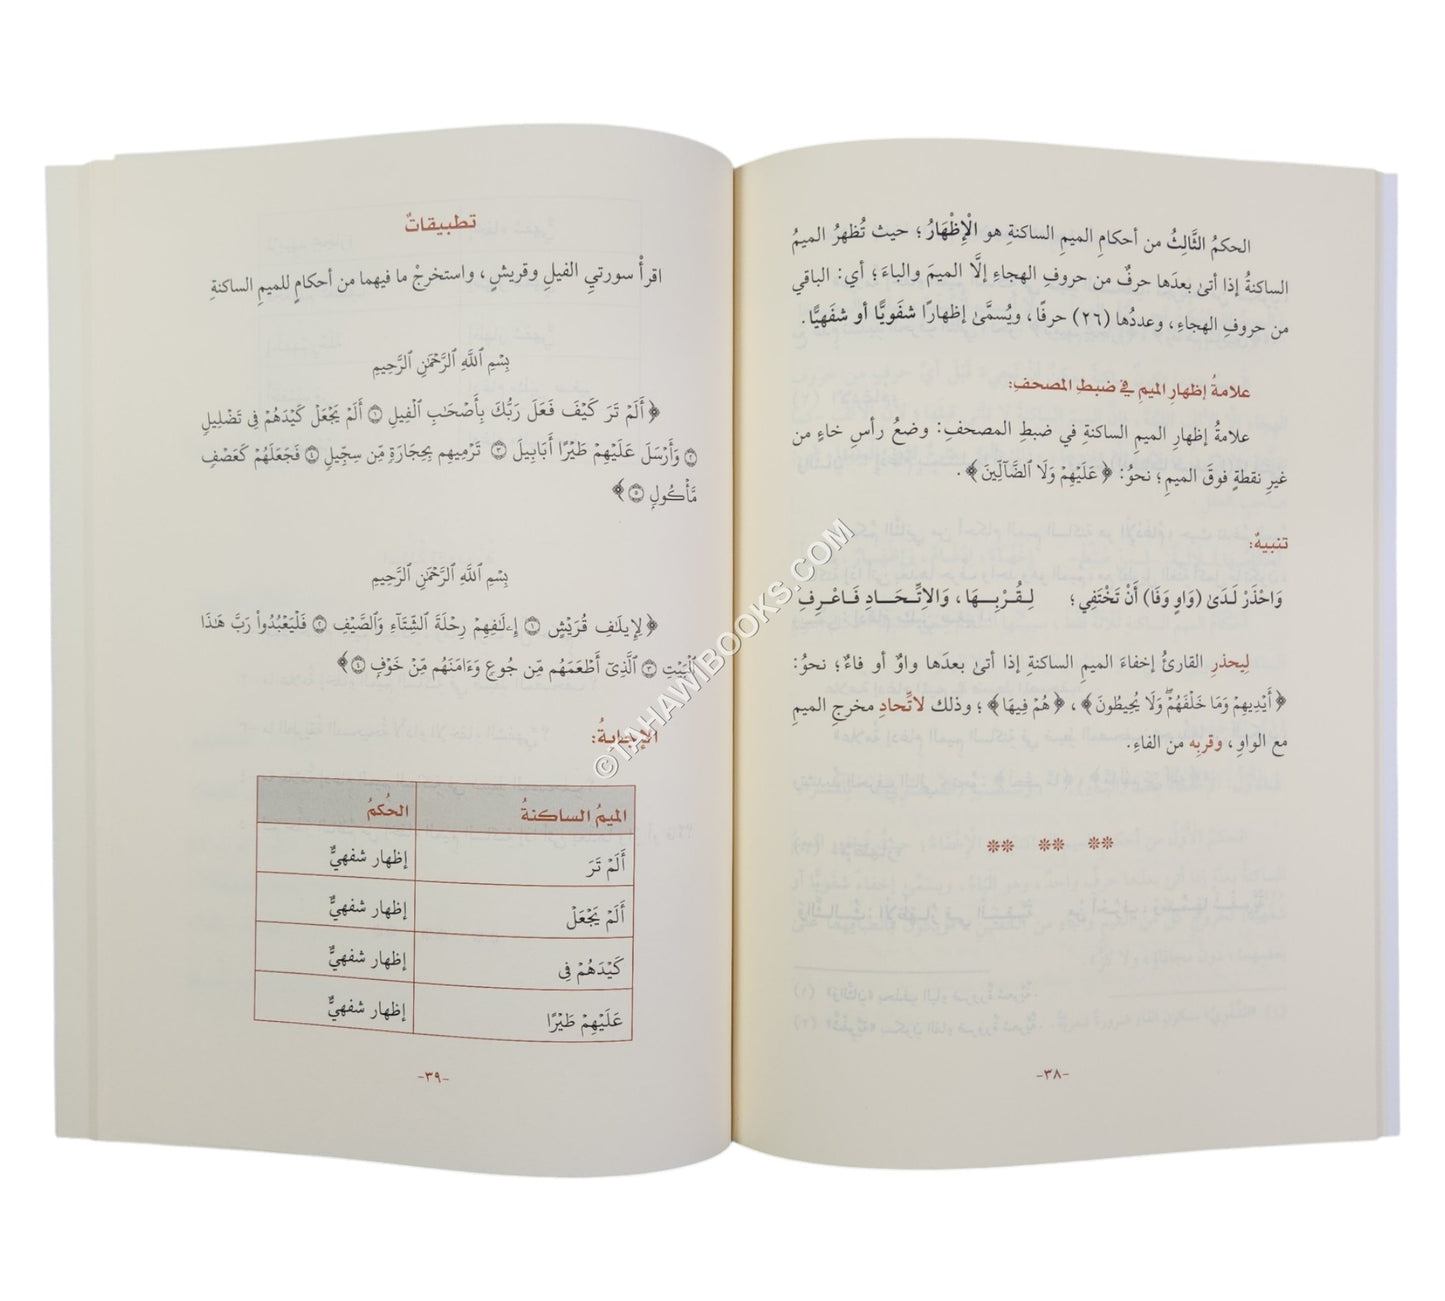 الحكمُ الثَّالِثُ من أحكامِ الميمِ الساكنةِ هو الْإِظْهَارُ ؛ حيث تُظهرُ الميمُ
الساكنةُ إذا أتىٰ بعدَها حرفٌ من حروفِ الهجاءِ إلَّا الميمَ والباءَ ؛ أي: الباقي
من حروفِ الهجاءِ، وعددُها (٢٦) حرفًا، ويُسمَّىٰ إظهارًا شفَويًّا أو شفَهيًّا.
علامةُ إظهارِ الميمِ في ضبطِ المصحفِ:
علامةُ إظهارِ الميمِ الساكنةِ في ضبطِ المصحفِ: وضعُ رأسِ خاءٍ من
غيرِ نقطةٍ فوقَ الميمِ؛ نحوُ: ﴿عَلَيۡهِمۡ وَلَا ٱلضَّآلِّينَ﴾.
تنبيهٌ:
وَاحْذَرْ لَدَىٰ (وَاوٍ وَفَا) أَنْ تَخْتَفِي ؛ لِقُرْبِهَا، وَالِاتِّحَادِ فَاعْرِفِ
لِيحذرِ القارئُ إخفاءَ الميمِ الساكنةِ إذا أتىٰ بعدَها واوٌ أو فاءٌ؛ نحوُ:
﴿أَيۡدِيهِمۡ وَمَا خَلۡفَهُمۡۖ وَلَا يُحِيطُونَ﴾، ﴿هُمۡ فِيهَا﴾ ؛ وذلك لاتِّحادِ مخرجِ الميمِ
مع الواوِ، وقربِه من الفاءِ.
-٣٨-
تطبيقاتٌ
اقرأْ سورتيِ الفيلِ وقريشٍ، واستخرجْ ما فيهما من أحكامٍ للميمِ الساكنةِ
بِسۡمِ ٱللَّهِ ٱلرَّحۡمَٰنِ ٱلرَّحِيمِ
﴿أَلَمۡ تَرَ كَيۡفَ فَعَلَ رَبُّكَ بِأَصۡحَٰبِ ٱلۡفِيلِ ١ أَلَمۡ يَجۡعَلۡ كَيۡدَهُمۡ فِي تَضۡلِيلٖ
٢ وَأَرۡسَلَ عَلَيۡهِمۡ طَيۡرًا أَبَابِيلَ ٣ تَرۡمِيهِم بِحِجَارَةٖ مِّن سِجِّيلٖ ٤ فَجَعَلَهُمۡ كَعَصۡفٖ
مَّأۡكُولِۭ ٥﴾
بِسۡمِ ٱللَّهِ ٱلرَّحۡمَٰنِ ٱلرَّحِيمِ
﴿لِإِيلَٰفِ قُرَيۡشٍ ١ إِۦلَٰفِهِمۡ رِحۡلَةَ ٱلشِّتَآءِ وَٱلصَّيۡفِ ٢ فَلۡيَعۡبُدُواْ رَبَّ هَٰذَا
ٱلۡبَيۡتِ ٣ ٱلَّذِيٓ أَطۡعَمَهُم مِّن جُوعٖ وَءَامَنَهُم مِّنۡ خَوۡفِۭ ٤﴾
الإجابةُ:
الميمُ الساكنةُ الحُكمُ
أَلَمۡ تَرَ إظهار شفهيٌّ
أَلَمۡ يَجۡعَلۡ إظهار شفهيٌّ
كَيۡدَهُمۡ فِي إظهار شفهيٌّ
عَلَيۡهِمۡ طَيۡرًا إظهار شفهيٌّ
-٣٩-
©TAHAWIBOOKS.COM